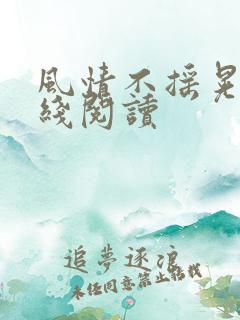 風情不摇晃
綫閱讀
追夢逐浪
未经同意禁止转载